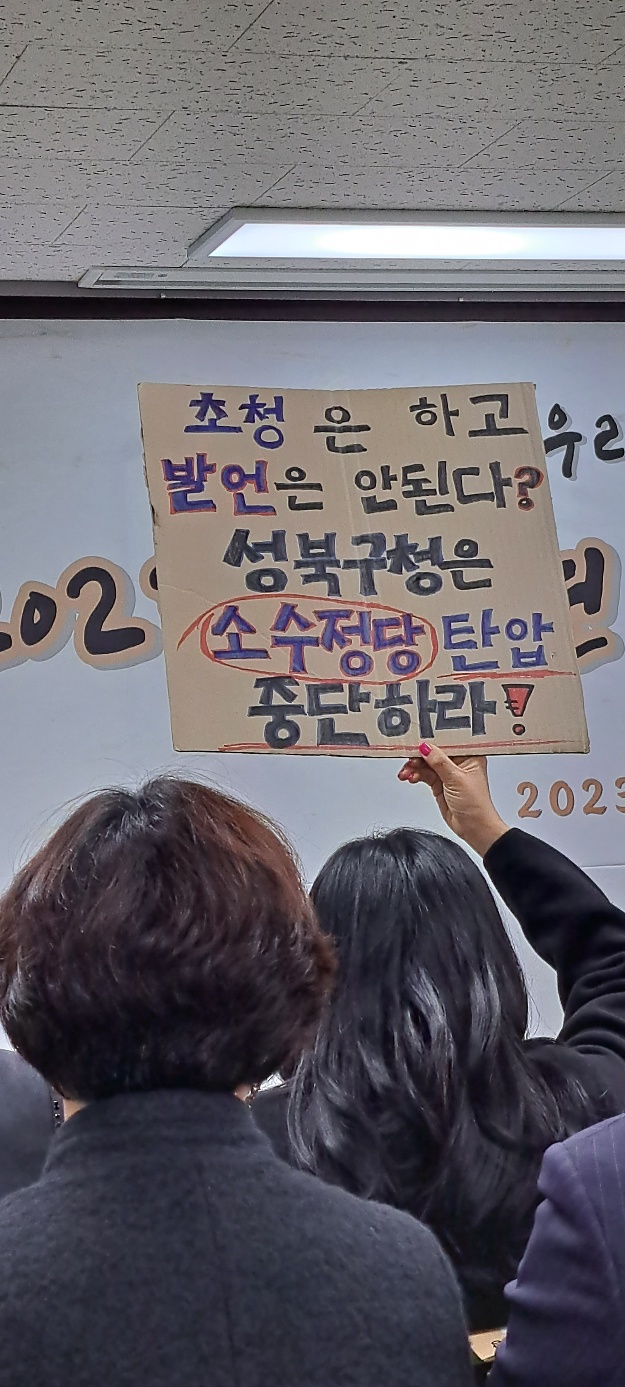 초청은 하고
발언은 안된다?
성북구청은
소수정당 탄압
중단하라!
우리
202
2023